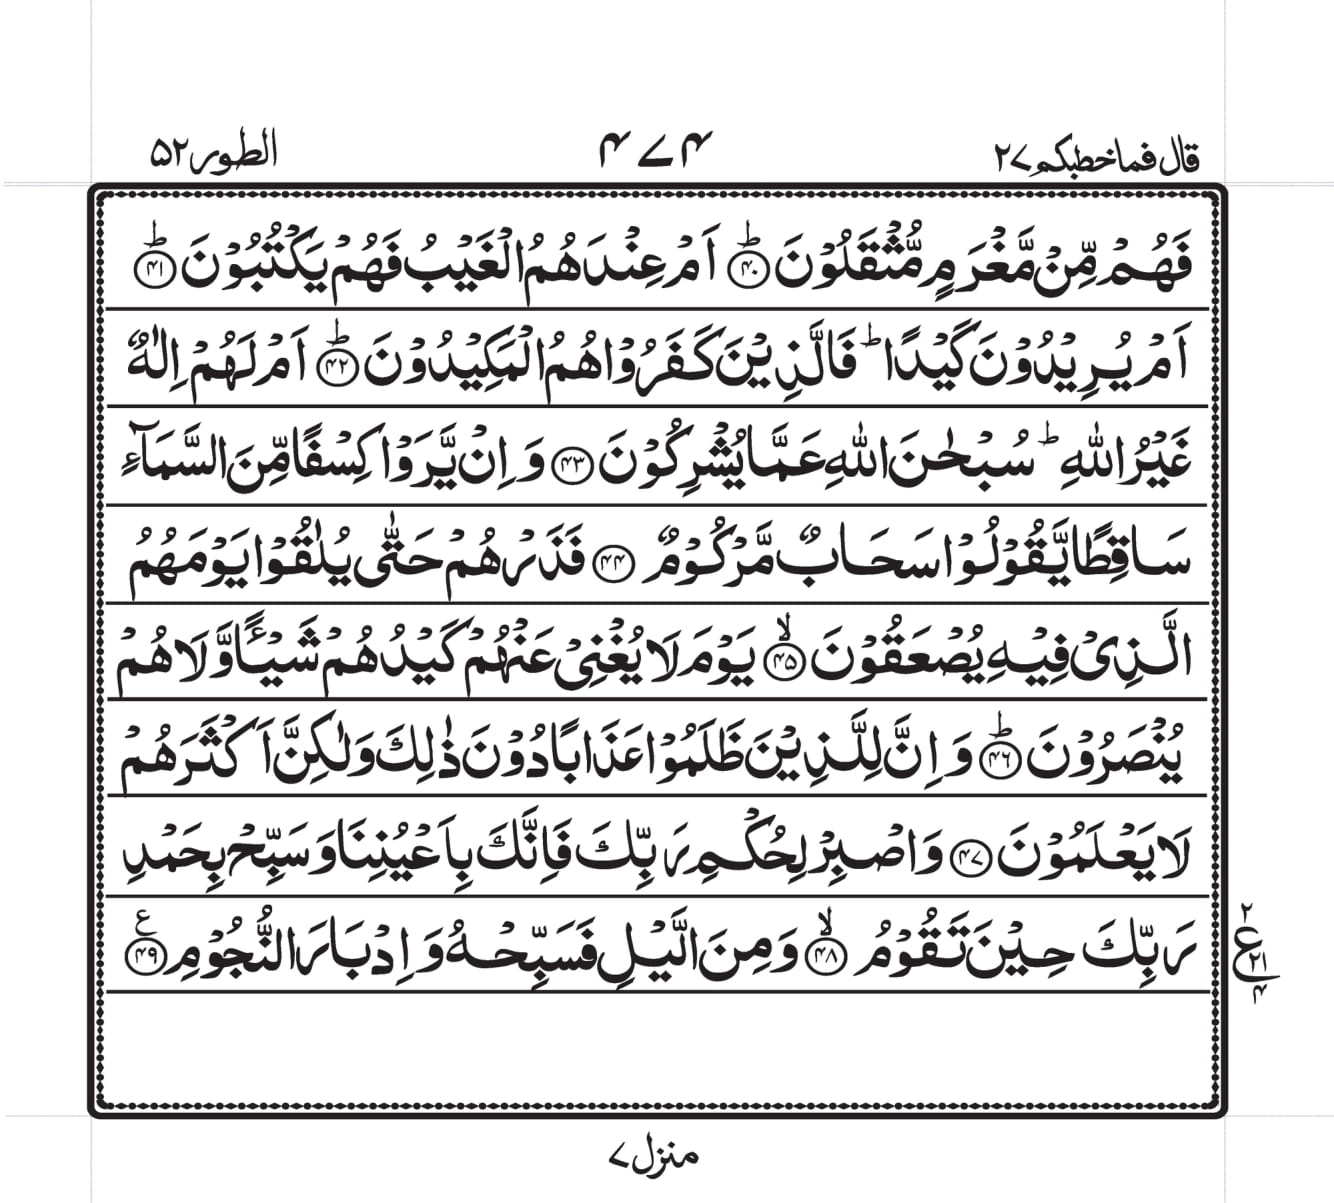 قال فما خطبكم ٢٧
٤٧٤
الطور ٥٢
فَهُمْ مِّنْ مَّغْرَمٍ مُّثْقَلُوْنَ ؕ‏﴿۴۰﴾ اَمْ عِنْدَهُمُ الْغَيْبُ فَهُمْ يَكْتُبُوْنَ ؕ‏﴿۴۱﴾
اَمْ يُرِيْدُوْنَ كَيْدًا ؕ فَالَّذِيْنَ كَفَرُوْا هُمُ الْمَكِيْدُوْنَ ؕ‏﴿۴۲﴾ اَمْ لَهُمْ اِلٰهٌ
غَيْرُ اللّٰهِ ؕ سُبْحٰنَ اللّٰهِ عَمَّا يُشْرِكُوْنَ ﴿۴۳﴾ وَ اِنْ يَّرَوْا كِسْفًا مِّنَ السَّمَآءِ
سَاقِطًا يَّقُوْلُوْا سَحَابٌ مَّرْكُوْمٌ ﴿۴۴﴾ فَذَرْهُمْ حَتّٰى يُلٰقُوْا يَوْمَهُمُ
الَّذِىْ فِيْهِ يُصْعَقُوْنَ ۙ‏﴿۴۵﴾ يَوْمَ لَا يُغْنِىْ عَنْهُمْ كَيْدُهُمْ شَيْـًٔا وَّلَا هُمْ
يُنْصَرُوْنَ ؕ‏﴿۴۶﴾ وَ اِنَّ لِلَّذِيْنَ ظَلَمُوْا عَذَابًا دُوْنَ ذٰلِكَ وَلٰكِنَّ اَكْثَرَهُمْ
لَا يَعْلَمُوْنَ ﴿۴۷﴾ وَاصْبِرْ لِحُكْمِ رَبِّكَ فَاِنَّكَ بِاَعْيُنِنَا وَسَبِّحْ بِحَمْدِ
رَبِّكَ حِيْنَ تَقُوْمُ ۙ‏﴿۴۸﴾ وَمِنَ الَّيْلِ فَسَبِّحْهُ وَ اِدْبَارَ النُّجُوْمِ ﴿۴۹﴾ ع
٢
ع ٢١
۴
منزل ٧